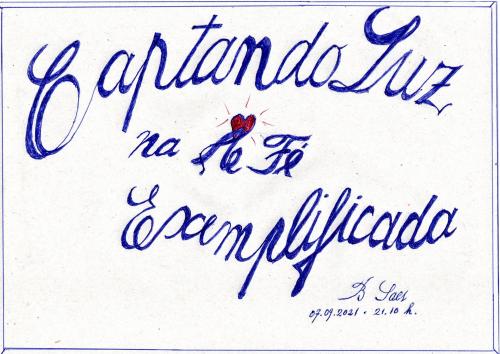 Captando Luz
na Fé
Exemplificada
B Saes
07.09.2021 . 21.10 h.